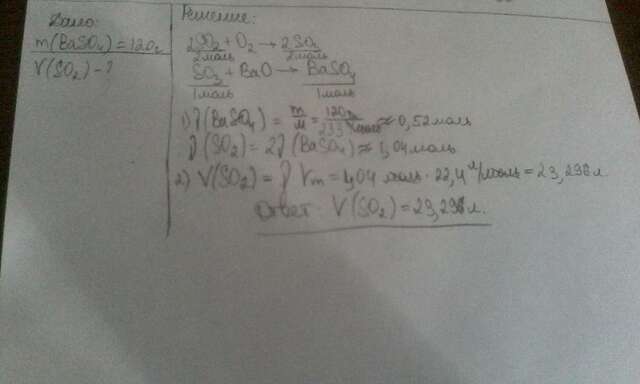 Дано:
m(BaSO₄) = 120г
V(SO₂) - ?
Решение:
2SO₂ + O₂ → 2SO₃
2моль 2моль
SO₃ + BaO → BaSO₄
1моль 1моль
1) ν(BaSO₄) = m/M = 120г/233г/моль ≈ 0,52моль
ν(SO₂) = 2ν(BaSO₄) ≈ 1,04моль
2) V(SO₂) = ν Vm = 1,04 моль · 22,4 л/моль = 23,296 л
Ответ: V(SO₂) = 23,296 л.